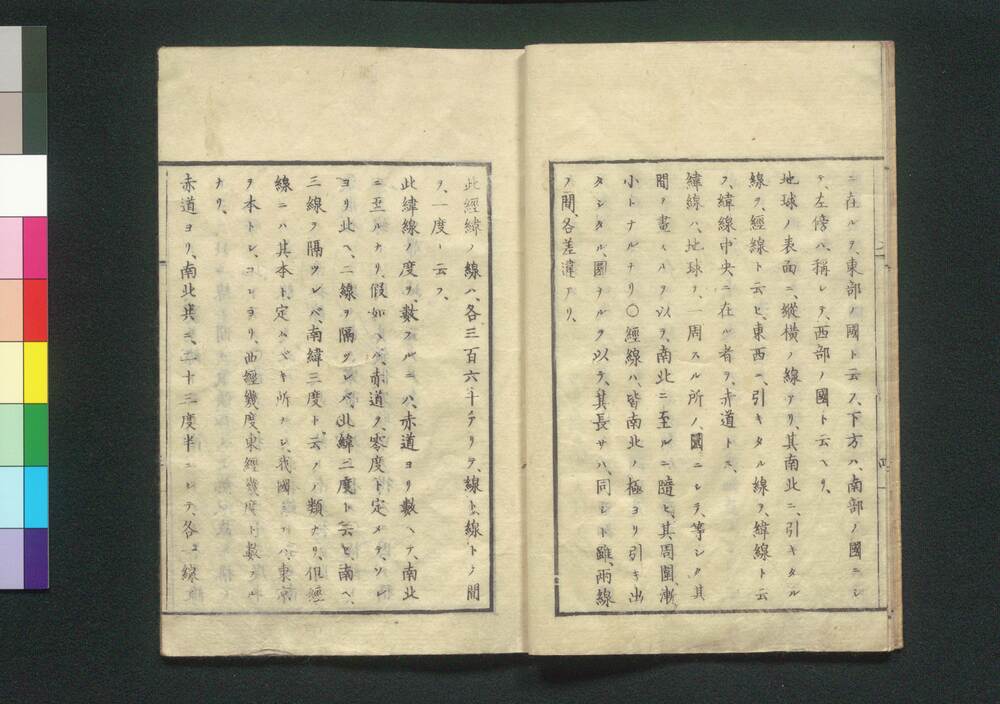 ニ在ルヲ、東部ノ國ト云フ、下方ハ、南部ノ國ニシ
テ、左傍ハ、稱シテ、西部ノ國ト云ヘリ、
地球ノ表面ニ、縱橫ノ線アリ、其南北ニ、引キタル
線ヲ、經線ト云ヒ、東西ニ、引キタル線ヲ、緯線ト云
フ、緯線中央ニ在ル者ヲ、赤道トス、
緯線ハ、地球ヲ、一周スル所ノ、圈ニシテ、等シク其
間ヲ畫スルヲ以テ、南北ニ至ルニ隨ヒ、其周圍、漸
小トナルナリ〇經線ハ、皆南北ノ極ヨリ引キ出
タシタル、圈ナルヲ以テ、其長サハ、同シト雖、兩線
ノ間、各差違アリ、
此經緯ノ線ハ、各三百六十アリテ、線ト線トノ間
ヲ、一度ト云フ、
此緯線ノ度ヲ、數フルニハ、赤道ヨリ數ヘテ、南北
ニ至ルナリ、假如ヘバ、赤道ヲ、零度ト定メテ、ソレ
ヨリ北ヘ、二線ヲ隔ツレバ、北緯二度ト云ヒ、南ヘ、
三線ヲ隔ツレバ、南緯三度ト云フノ類ナリ、但經
線ニハ其本ト、定ムベキ所ナシ、我國ニテハ、東京
ヲ本トシ、コレヨリ、西經幾度、東經幾度ト數フル
ナリ、
赤道ヨリ、南北共ニ、二十三度半ニシテ、各一線